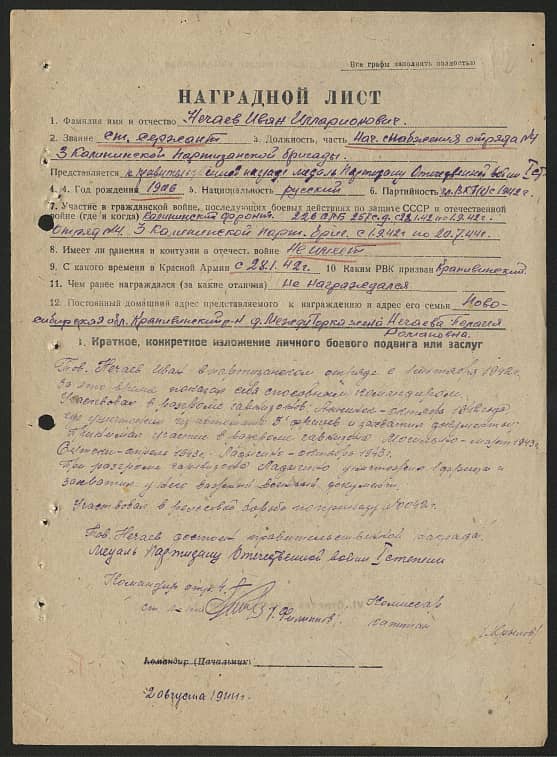 Все графы заполнять полностью
НАГРАДНОЙ ЛИСТ
1. Фамилия имя и отчество Нечаев Иван Илларионович.
2. Звание ст. сержант 3. Должность, часть Нач. снабжения отряда №4
3 Калининской партизанской бригады.
Представляется к правительственной награде медаль Партизану Отечественной войны I ст.
4. 4. Год рождения 1906 5. Национальность русский 6. Партийность чл. ВКП(б) с 1942 г.
7. Участие в гражданской войне, последующих боевых действиях по защите СССР и отечественной
войне (где и когда) Калининский фронт. с 28.1.42 по 1.9.42 г.
отряд №4 3 Калининской парт. бриг. с 1.9.42 г по 20.7.44 г.
8. Имеет ли ранения и контузии в отечест. войне Не имеет
9. С какого времени в Красной Армии с 28.1.42 г. 10 Каким РВК призван Крапивинский.
11. Чем ранее награждался (за какие отличия) не награждался
12. Постоянный домашний адрес представляемого к награждению и адрес его семьи Ново-
сибирская обл. Крапивинский р-н жена Нечаева
Романовна.
I. Краткое, конкретное изложение личного боевого подвига или заслуг
Тов. Нечаев Иван в партизанском отряде с сентября 1942 г.
За это время показал себя способным командиром.
Участвовал в разгроме гарнизонов октябрь 1942 года,
где уничтожил из автомата 3 фрицев и захватил документы.
Принимал участие в разгроме гарнизона март 1943 г.
апрель 1943 г. октябрь 1943 г.
При разгроме гарнизона уничтожил 1 фрица и
захватил у него важный военный документ.
Участвовал в рельсовой борьбе по приказу №0042 г.
Тов. Нечаев достоин правительственной награды
Медаль Партизану Отечественной войны I степени
Командир отр. 4
ст. л-т /Филиппов/
Комиссар
капитан
/Крылов/
Командир (Начальник)
2 августа 1944 г.